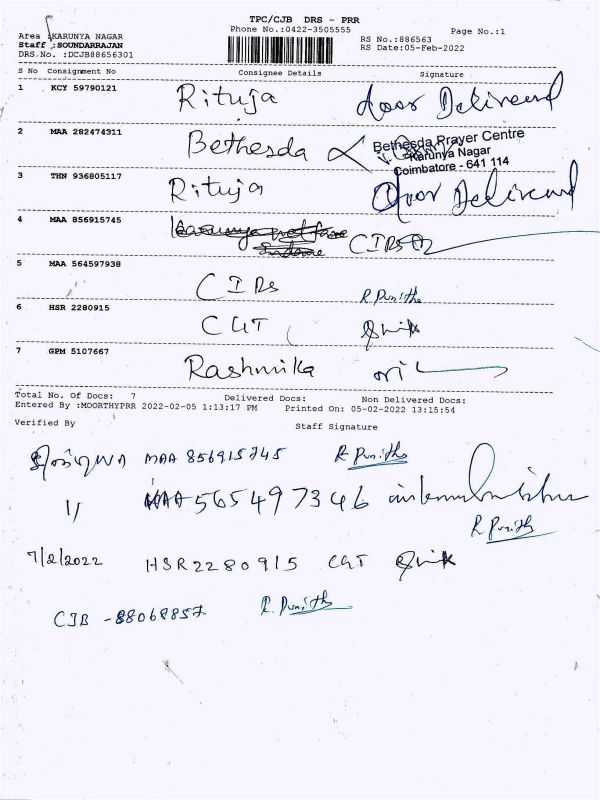 TPC/CJB DRS - PRR
Phone No.:0422-3505555
Page No.:1
Area :KARUNYA NAGAR
Staff :SOUNDARRAJAN
DRS.No. :DCJB88656301
RS No.:886563
RS Date:05-Feb-2022
S No Consignment No Consignee Details Signature
1 KCY 59790121 Rituja door Delivered
2 MAA 282474311 Bethesda
Bethesda Prayer Centre
Karunya Nagar
Coimbatore - 641 114
3 THN 936805117 Rituja Door Delivered
4 MAA 856915745 CIRs
5 MAA 564597938 CIRs R.Punitha
6 HSR 2280915 CGT
7 GPM 5107667 Rashmika
Total No. Of Docs: 7 Delivered Docs: Non Delivered Docs:
Entered By :MOORTHYPRR 2022-02-05 1:13:17 PM Printed On: 05-02-2022 13:15:54
Verified By Staff Signature
MAA 856915745 R.Punitha
11 MAA 565497346
R.Punitha
7/2/2022 HSR2280915 CGT
CJB -88068857 R.Punitha